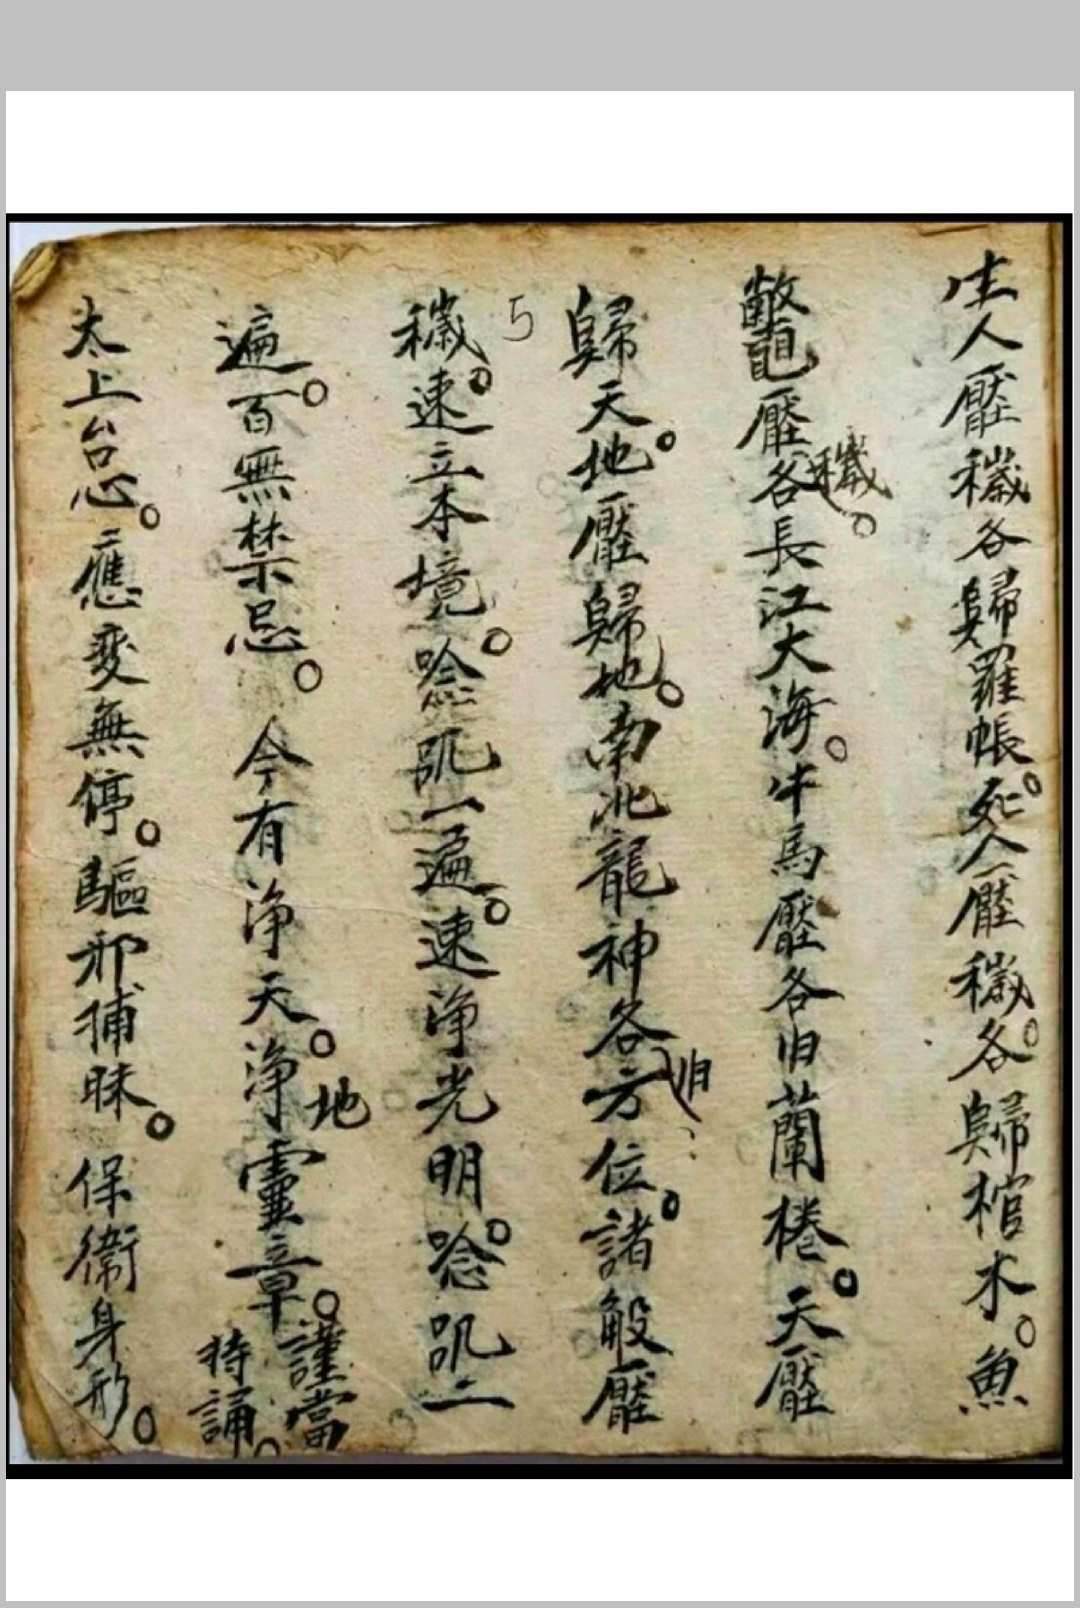 生人壓穢各歸羅帳。死人壓穢。各歸棺木。魚
鱉壓穢。各長江大海。牛馬壓各旧蘭棬。天壓
歸天。地壓歸地。南北龍神各旧方位。諸般壓
5
穢。速立本境。唸咒一遍。速淨光明。唸咒二
遍。百無禁忌。今有淨天。淨地靈章。謹當持誦。
太上台忌。應変無停。驅邪捕昧。保衛身形。